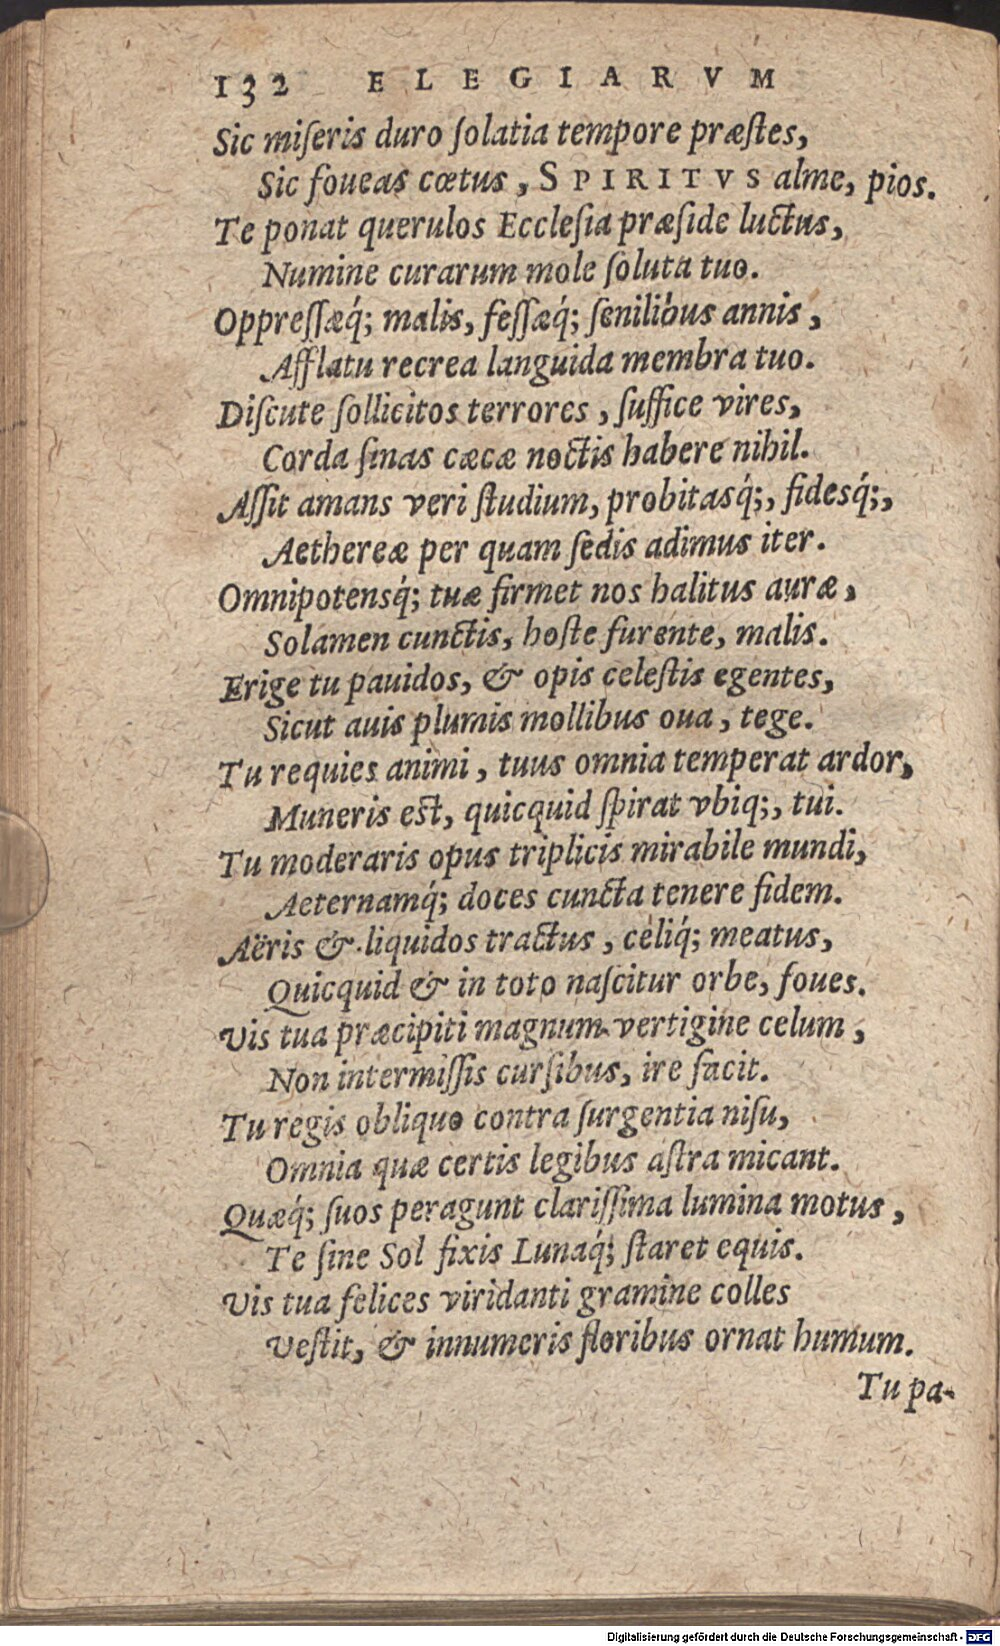 132 ELEGIARVM
Sic miſeris duro ſolatia tempore præſtes,
Sic foueas cœtus, SPIRITVS alme, pios.
Te ponat querulos Eccleſia præſide luctus,
Numine curarum mole ſoluta tuo.
Oppreſſæq́; malis, feſſæq́; ſenilibus annis,
Afflatu recrea languida membra tuo.
Diſcute ſollicitos terrores, ſuffice vires,
Corda ſinas cæcæ noctis habere nihil.
Aſſit amans veri ſtudium, probitasq́;, fidesq́;,
Aethereæ per quam ſedis adimus iter.
Omnipotensq́; tuæ firmet nos halitus auræ,
Solamen cunctis, hoſte furente, malis.
Erige tu pauidos, & opis celeſtis egentes,
Sicut auis plumis mollibus oua, tege.
Tu requies animi, tuus omnia temperat ardor,
Muneris est, quicquid ſpirat vbiq;, tui.
Tu moderaris opus triplicis mirabile mundi,
Aeternamq́; doces cuncta tenere fidem.
Aëris & liquidos tractus, celiq́; meatus,
Quicquid & in toto naſcitur orbe, foues.
Vis tua præcipiti magnum vertigine celum,
Non intermiſſis curſibus, ire facit.
Tu regis obliquo contra ſurgentia niſu,
Omnia quæ certis legibus aſtra micant.
Quæq́; ſuos peragunt clariſſima lumina motus,
Te ſine Sol fixis Lunaq́; ſtaret equis.
Vis tua felices viridanti gramine colles
Veſtit, & innumeris floribus ornat humum.
Tu pa-
Digitalisierung gefördert durch die Deutsche Forschungsgemeinschaft - DFG